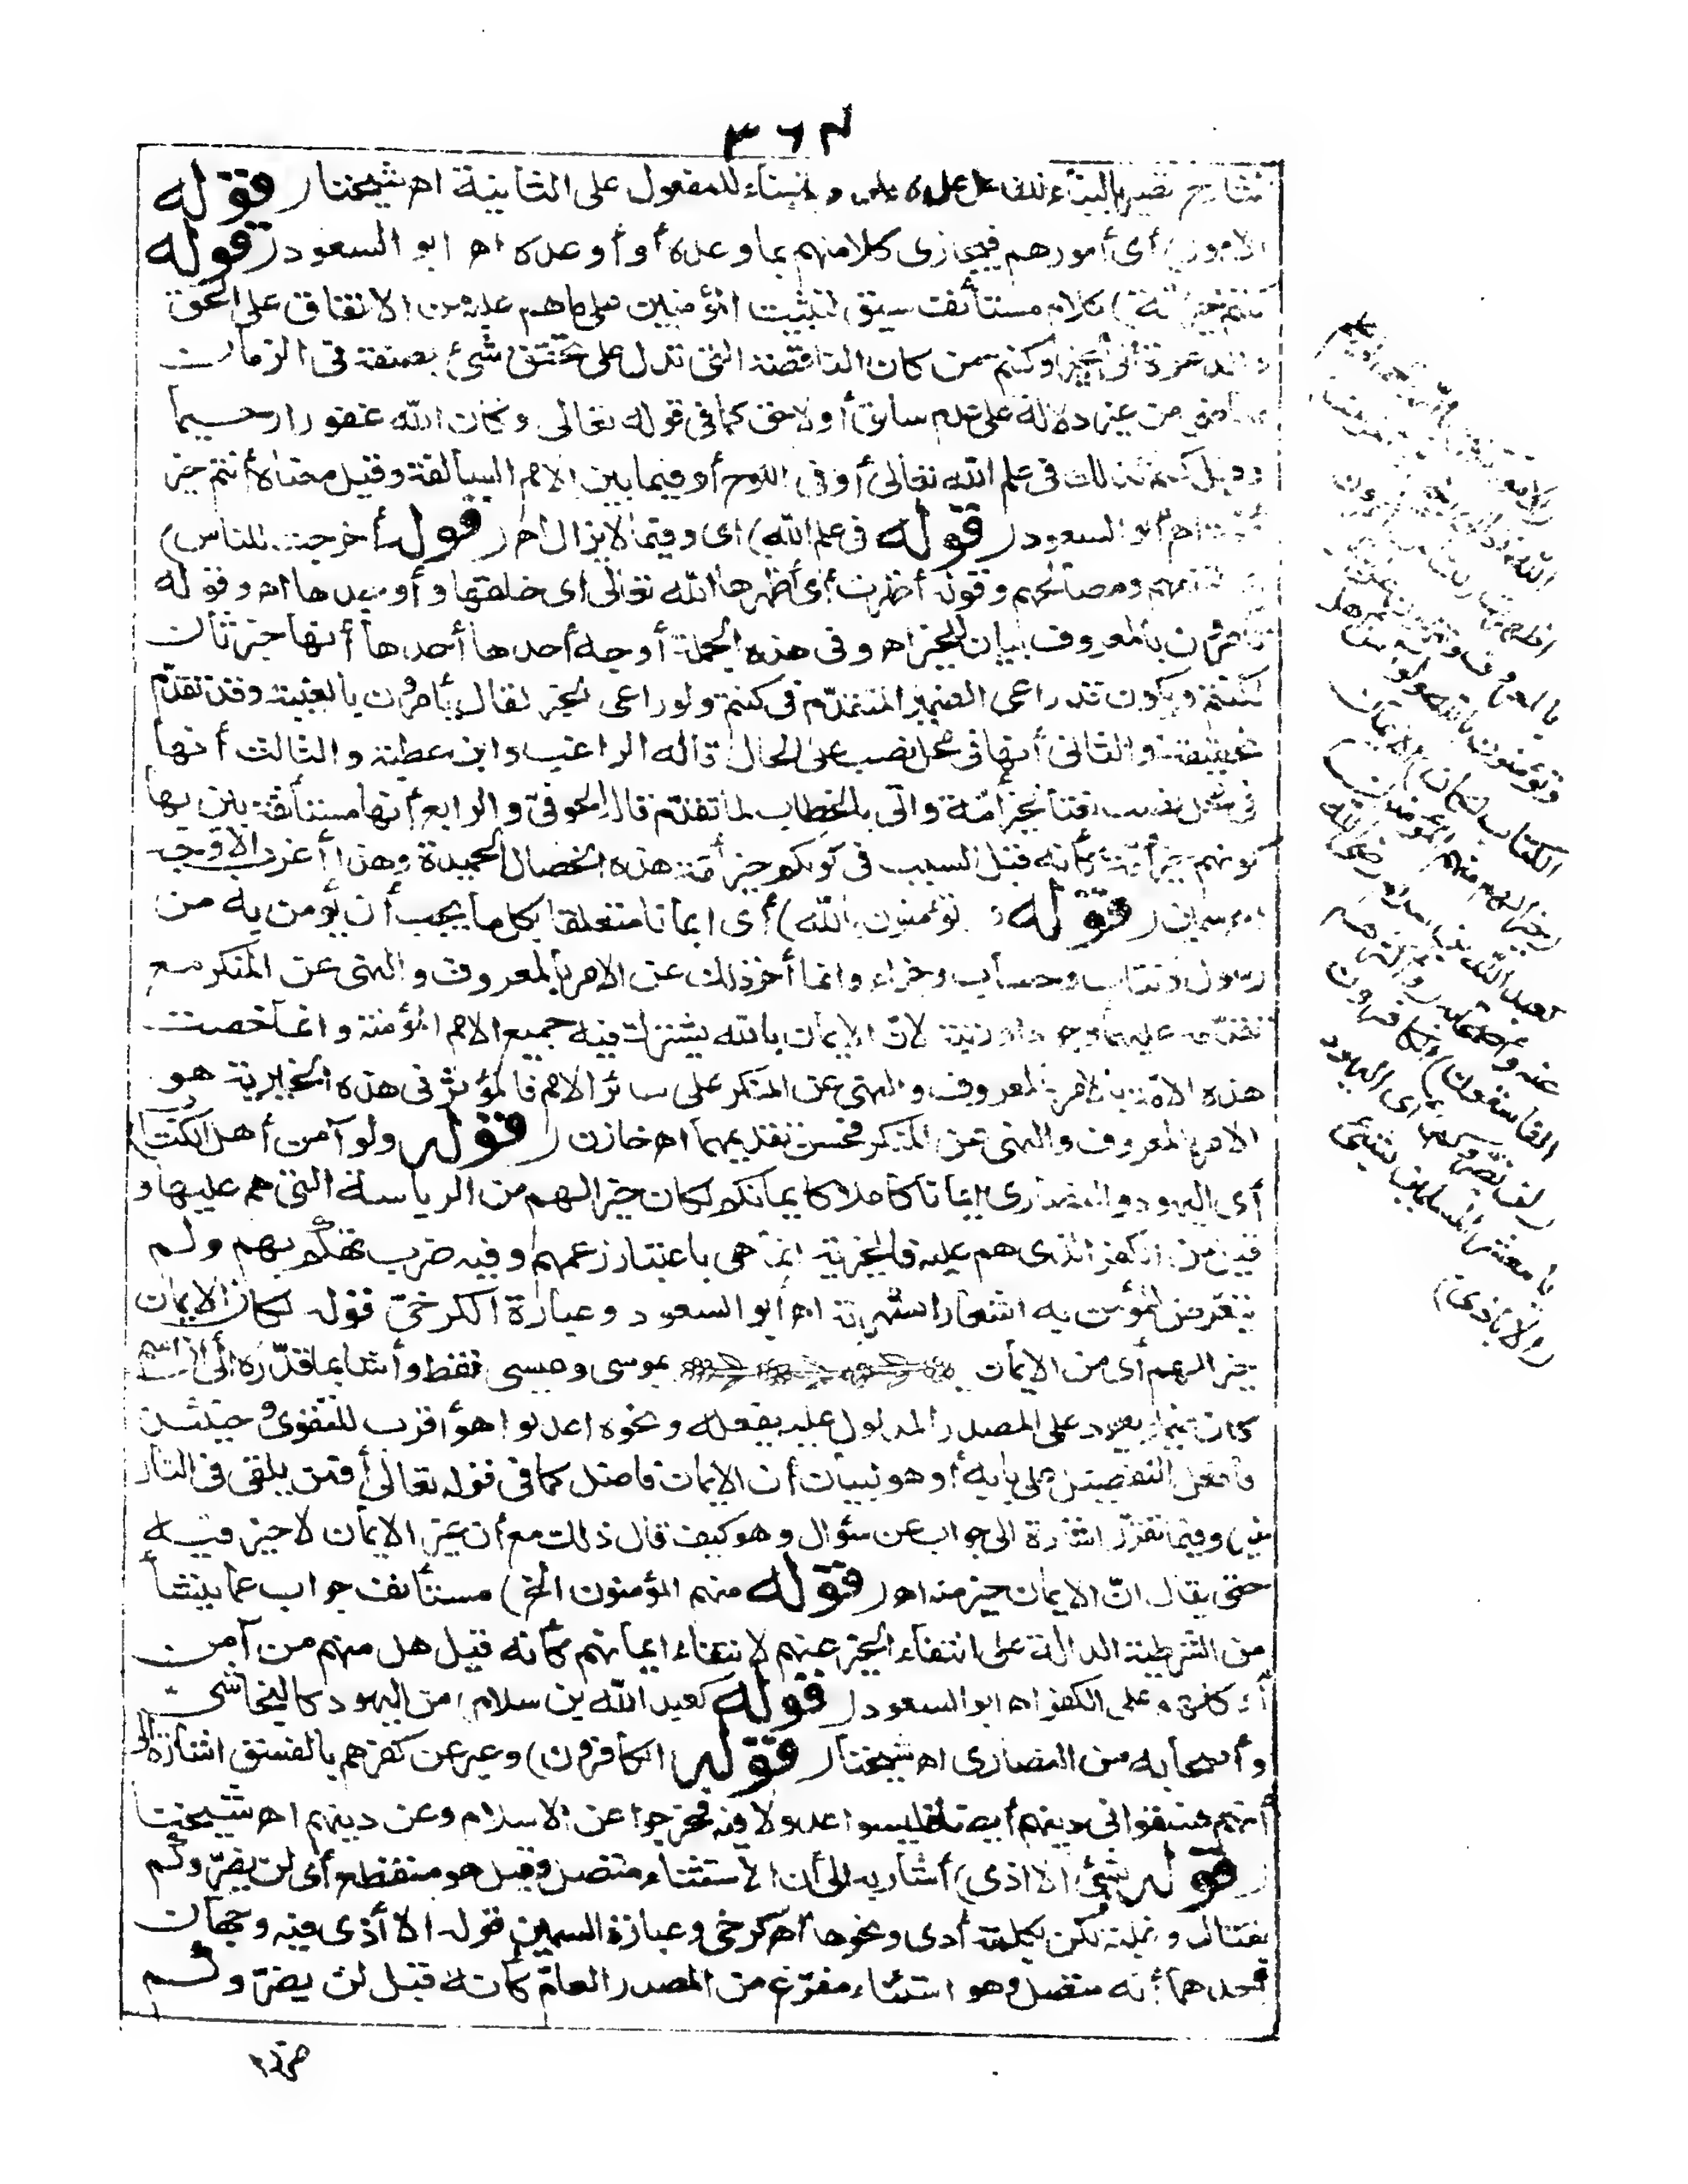 ٣٦٤
تصير بالبناء للفاعل على و للمفعول على الثانية اه شيخنا (قوله
الامور) أى أمورهم فيجازى كلا منهم بما وعده أو أوعده اه ابو السعود (قوله
كلام مستأنف سيق لتثبيت المؤمنين على ما هم عليه من الاتفاق على الحق
وكنتم من كان الناقصة التى تدل على تحقق شئ بصفة فى الزمان
من غير دلالة على عدم سابق أو لاحق كما فى قوله تعالى وكان الله غفورا رحيما
وقيل كنتم كذلك فى علم الله تعالى أو فى اللوح أو فيما بين الامم السالفة وقيل معناه أنتم خير
اه أبو السعود (قوله فى علم الله) اى وفيما لايزال اه (قوله أخرجت للناس)
ومصالحهم وقوله أظهرت أى أظهرها الله تعالى اى خلقها وأوجدها اه وقوله
تأمرون بالمعروف بيان للخير اه وفى هذه الجملة أوجه أحدها أحدها أنها خبر ثان
لكنتم ويكون قد راعى الضمير المتقدّم فى كنتم ولو راعى الخبر لقال يأمرون بالغيبة وقد تقدّم
تحقيقه والثانى أنها فى محل نصب على الحال قاله الراغب وابن عطية والثالث أنها
فى محل نصب نعتا لخير أمّة وأتى بالخطاب لما تقدّم قاله الحوفىّ والرابع أنها مستأنفة بين بها
كونهم خير أمّة كأنه قيل السبب فى كونكم خير أمّة هذه الخصال الحميدة وهذا أغرب الاوجه
اه سمين (قوله وتؤمنون بالله) أى ايمانا متعلقا بكل ما يجب أن يؤمن به من
رسول وكتاب وحساب وجزاء وانما أخر ذلك عن الامر بالمعروف والنهى عن المنكر مع
تقدّمه عليهما وجودا ورتبة لانّ الايمان بالله يشترك فيه جميع الامم المؤمنة وانما خصت
هذه الامّة بالامر بالمعروف والنهى عن المنكر على سائر الامم فالمؤثر فى هذه الخيرية هو
الامر بالمعروف والنهى عن المنكر فحسن تقديمهما اه خازن (قوله ولو آمن أهل الكتاب)
أى اليهود والنصارى ايمانا كاملا كايمانكم لكان خيرا لهم من الرياسة التى هم عليها و
قيل من الكفر الذى هم عليه فالخيرية انما هى باعتبار زعمهم وفيه ضرب تهكّم بهم ولم
يتعرّض للمؤمن به اشعارا بشهرته اه أبو السعود وعبارة الكرخىّ قوله لكان الايمان
خيرا لهم أى من الايمان بموسى وعيسى فقط وأشار بما قدّره الى أن اسم
كان ضمير يعود على المصدر المدلول عليه بفعله ونحوه اعدلوا هو أقرب للتقوى وحينئذ
فأفعل التفضيل على بابه أو هو لبيان أن الايمان فاضل كما فى قوله تعالى أفمن يلقى فى النار
خير وفيما تقرّر اشارة الى جواب عن سؤال وهو كيف قال ذلك مع أن غير الايمان لا خير فيه
حتى يقال انّ الايمان خير منه اه (قوله منهم المؤمنون الخ) مستأنف جواب عما ينشأ
من الشرطية الدالة على انتفاء الخير عنهم لانتفاء ايمانهم كأنه قيل هل منهم من آمن
أو كلهم على الكفر اه ابو السعود (قوله كعبد الله بن سلام) من اليهود كالنجاشى
وأصحابه من النصارى اه شيخنا (قوله الكافرون) وعبر عن كفرهم بالفسق اشارة الى
أنهم فسقوا فى دينهم أيضا فليسوا عدولا فيه فخرجوا عن الاسلام وعن دينهم اه شيخنا
(قوله شئ الا اذى) أشار به الى أن الاستثناء متصل وقيل هو منقطع أى لن يضرّوكم
بقتال و غلبة لكن بكلمة أذى ونحوها اه كرخى وعبارة السمين قوله الا أذى فيه وجهان
أحدهما أنه متصل وهو استثناء مفرّغ من المصدر العام كأنه قيل لن يضرّوكم
بالمعروف
وتؤمنون بالله ولو
الكتاب لكان) الايمان
(خيرا لهم منهم المؤمنون)
كعبد الله بن سلام رضى الله
عنه وأصحابه (وأكثرهم
الفاسقون) الكافرون
(لن يضروكم) أى اليهود
يا معشر المسلمين بشئ
(الا أذى)